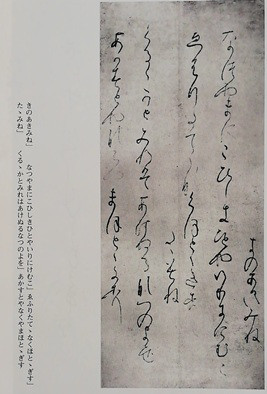 きのあきみね
なつやまにこひしきひとやいりにけむこ
ゑふりたてゝなくほとゝきす
たゝみね
くるゝかとみれはあけぬるなつのよを
あかすとやなくやまほとゝきす
きのあきみね」　なつやまにこひしきひとやいりにけむこ」ゑふりたてゝなくほとゝぎす」
たゝみね」　くるゝかとみれはあけぬるなつのよを」あかすとやなくやまほとゝぎす